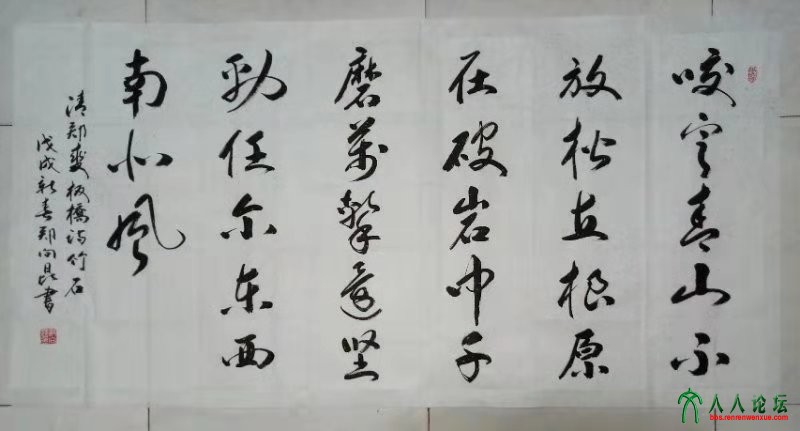 咬定青山不
放松立根原
在破岩中千
磨萬擊還坚
劲任尔东西
南北風
清郑燮板橋诗竹石
戊戌新春郑向昆書
人人论坛
bbs.renrenwenxue.com